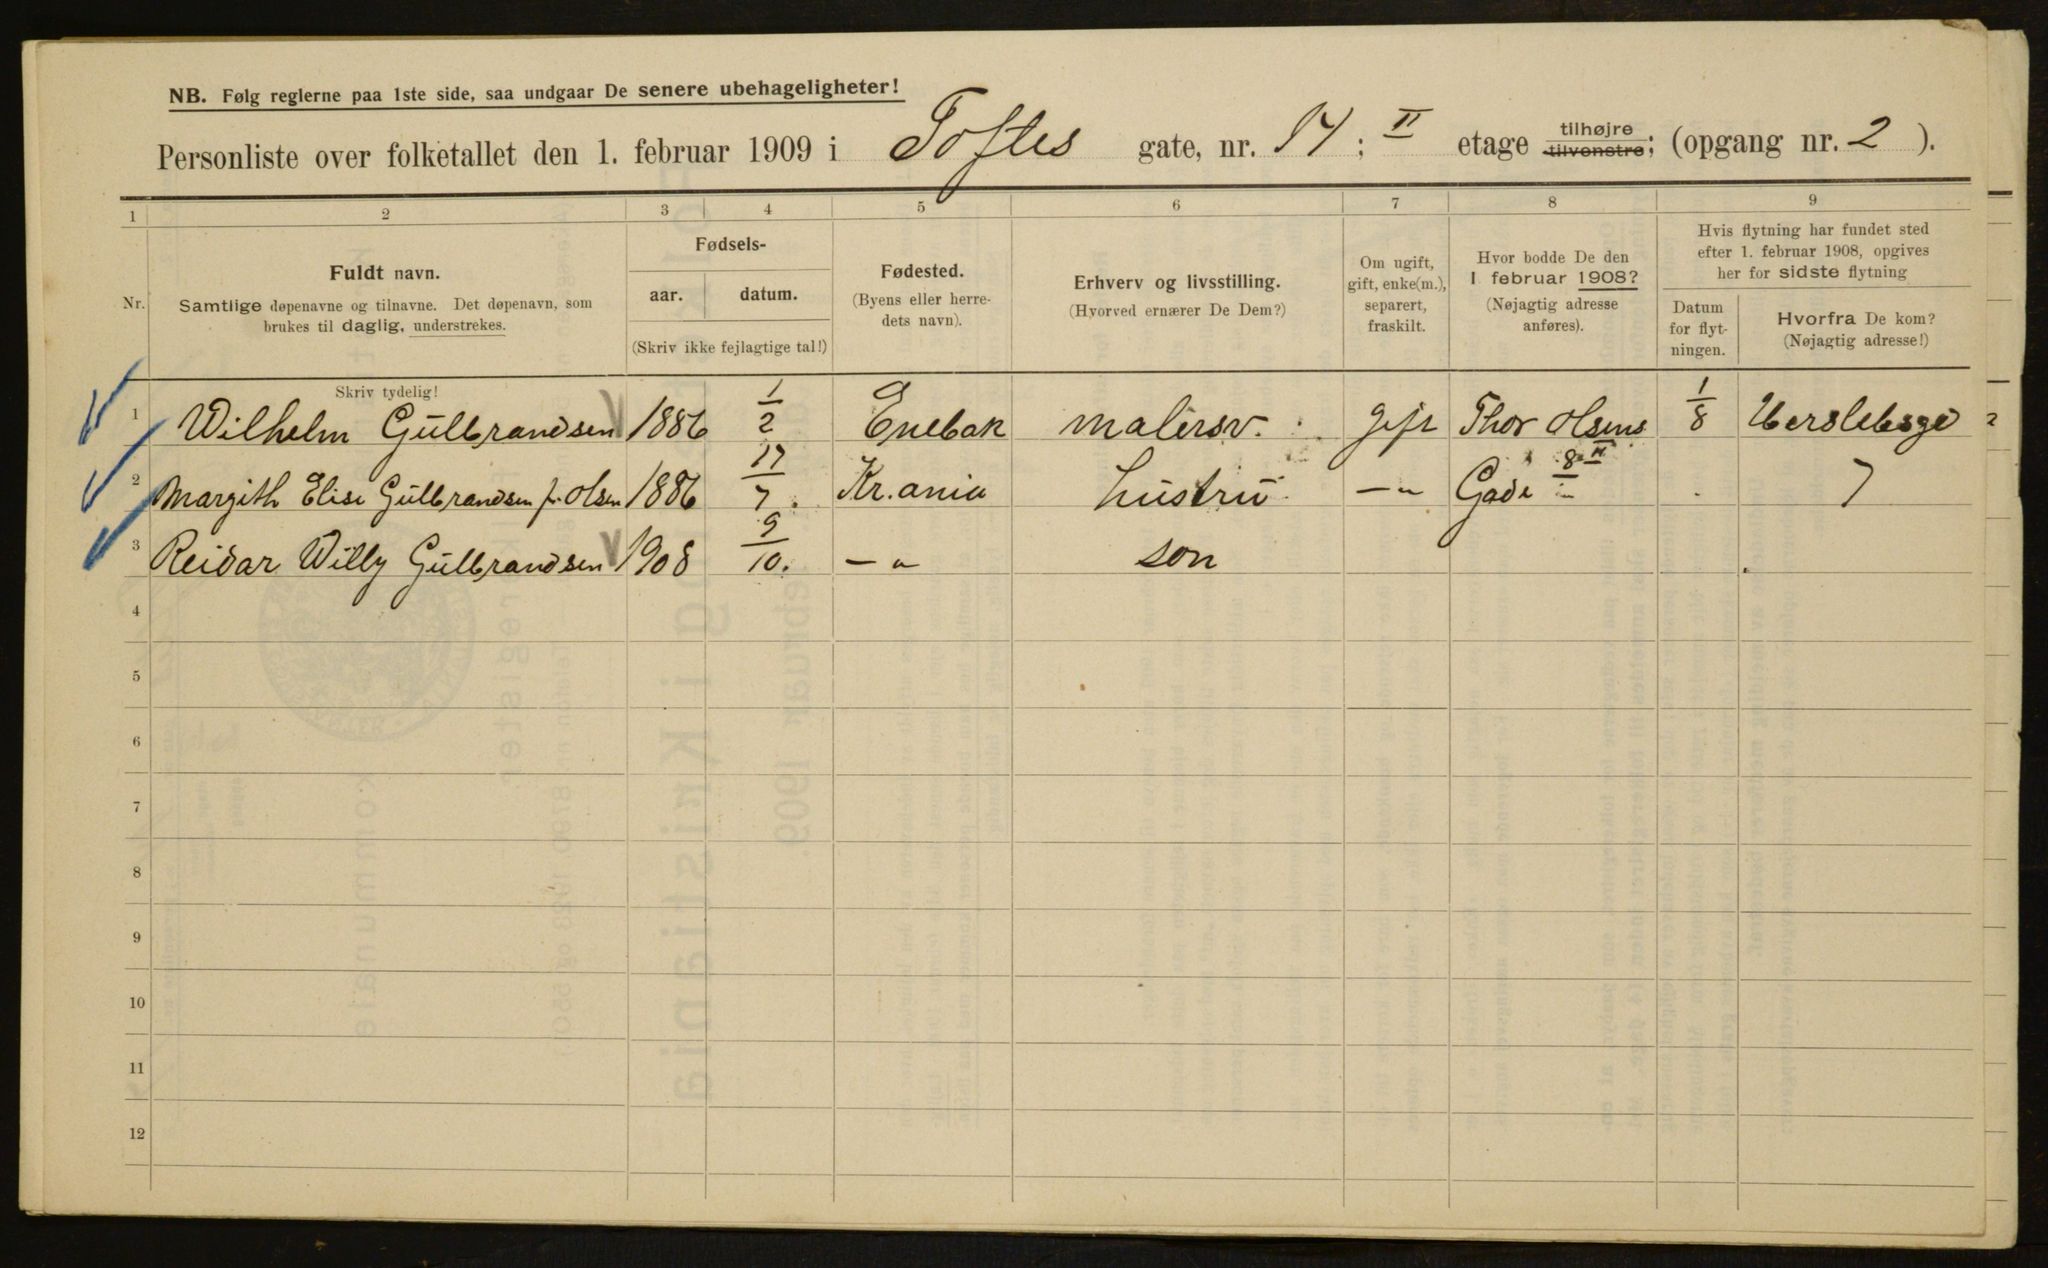 NB. Følg reglerne paa 1ste side, saa undgaar De senere ubehageligheter!
Personliste over folketallet den 1. februar 1909 i Toftes gate, nr. 14; II etage tilhøjre tilvenstre; (opgang nr. 2 ).
1 2 3 4 5 6 7 8 9
Nr.
Fuldt navn.
Samtlige døpenavne og tilnavne. Det døpenavn, som
brukes til daglig, understrekes.
Fødsels-
aar. datum.
(Skriv ikke fejlagtige tal!)
Fødested.
(Byens eller herre-
dets navn).
Erhverv og livsstilling.
(Hvorved ernærer De Dem?)
Om ugift,
gift, enke(m.),
separert,
fraskilt.
Hvor bodde De den
1 februar 1908?
(Nøjagtig adresse
anføres).
Hvis flytning har fundet sted
efter 1. februar 1908, opgives
her for sidste flytning
Datum
for flyt-
ningen.
Hvorfra De kom?
(Nøjagtig adresse!)
Skriv tydelig!
1 Wilhelm Gulbrandsen 1886 1/2 Enebak malersv. gift Thor Olsens 1/8 Herslebsgd
2 Margith Elise Gulbrandsen f. Olsen 1886 17/7. Kr.ania hustru —„ Gade 8 II 7
3 Reidar Willy Gulbrandsen 1908 9/10. —„ son
4
5
6
7
8
9
10
11
12